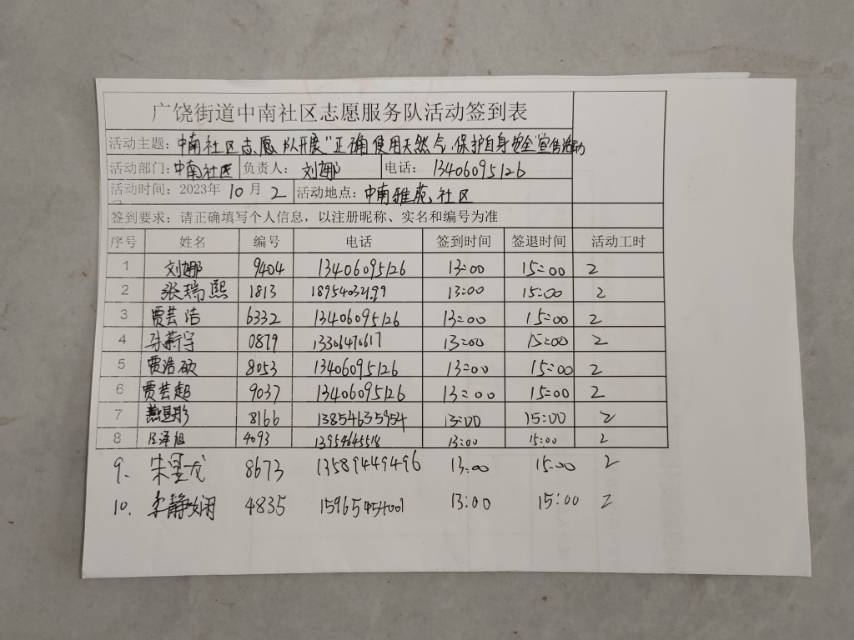 广饶街道中南社区志愿服务队活动签到表
活动主题：中南社区志愿队开展“正确使用天然气，保护自身安全”宣传活动
活动部门：中南社区 负责人：刘娜 电话：13406095126
活动时间：2023年10月2 活动地点：中南雅苑社区
签到要求：请正确填写个人信息，以注册昵称、实名和编号为准
序号 姓名 编号 电话 签到时间 签退时间 活动工时
1 刘娜 9404 13406095126 13:00 15:00 2
2 张瑞熙 1813 18954032199 13:00 15:00 2
3 贾芸浩 6332 13406095126 13:00 15:00 2
4 0879 13306470617 13:00 15:00 2
5 贾浩硕 8053 13406095126 13:00 15:00 2
6 贾芸超 9037 13406095126 13:00 15:00 2
7 8166 13854635954 13:00 15:00 2
8 4093 13954645518 13:00 15:00 2
9. 朱昱龙 8673 13589449496 13:00 15:00 2
10. 李静娴 4835 15965454001 13:00 15:00 2